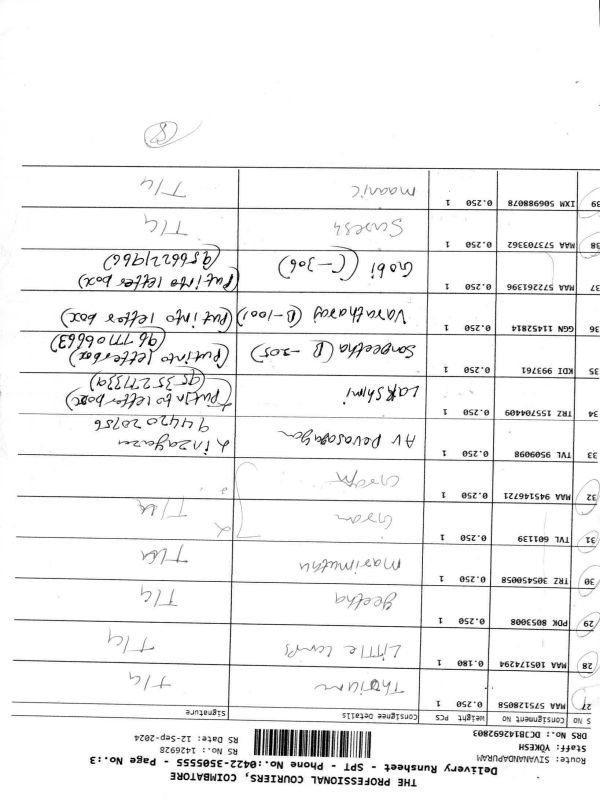 THE PROFESSIONAL COURIERS, COIMBATORE
Delivery Runsheet - SPT - Phone No.:0422-3505555 - Page No.:3
Route: SIVANANDAPURAM
Staff: YOKESH
DRS No.: DCBJ1426928O3
RS No.: 1426928
RS Date: 12-Sep-2024
S NO Consignment NO Weight PCS Consignee Details Signature
27 MAA 575128058 0.250 1 T/4
28 MAA 105174294 0.180 1 Little T/4
29 PDK 8053008 0.250 1 geetha T/4
30 TRZ 305450058 0.250 1 marimuthu
31 TVL 601139 0.250 1
32 MAA 945146721 0.250 1
33 TVL 9509098 0.250 1 AV 9442020756
34 TRZ 155704409 0.250 1 Lakshmi (put into letter box)
35 KDI 993761 0.250 1 Sangeetha (B-205) (put into letter box)
(9677706663)
36 GGN 11452814 0.250 1 Varatharaj (B-1001) (put into letter box)
37 MAA 572261396 0.250 1 Gobi (C-306) (put into letter box)
(9566221966)
38 MAA 573703362 0.250 1 T/4
39 IXM 506988078 0.250 1 T/4
8